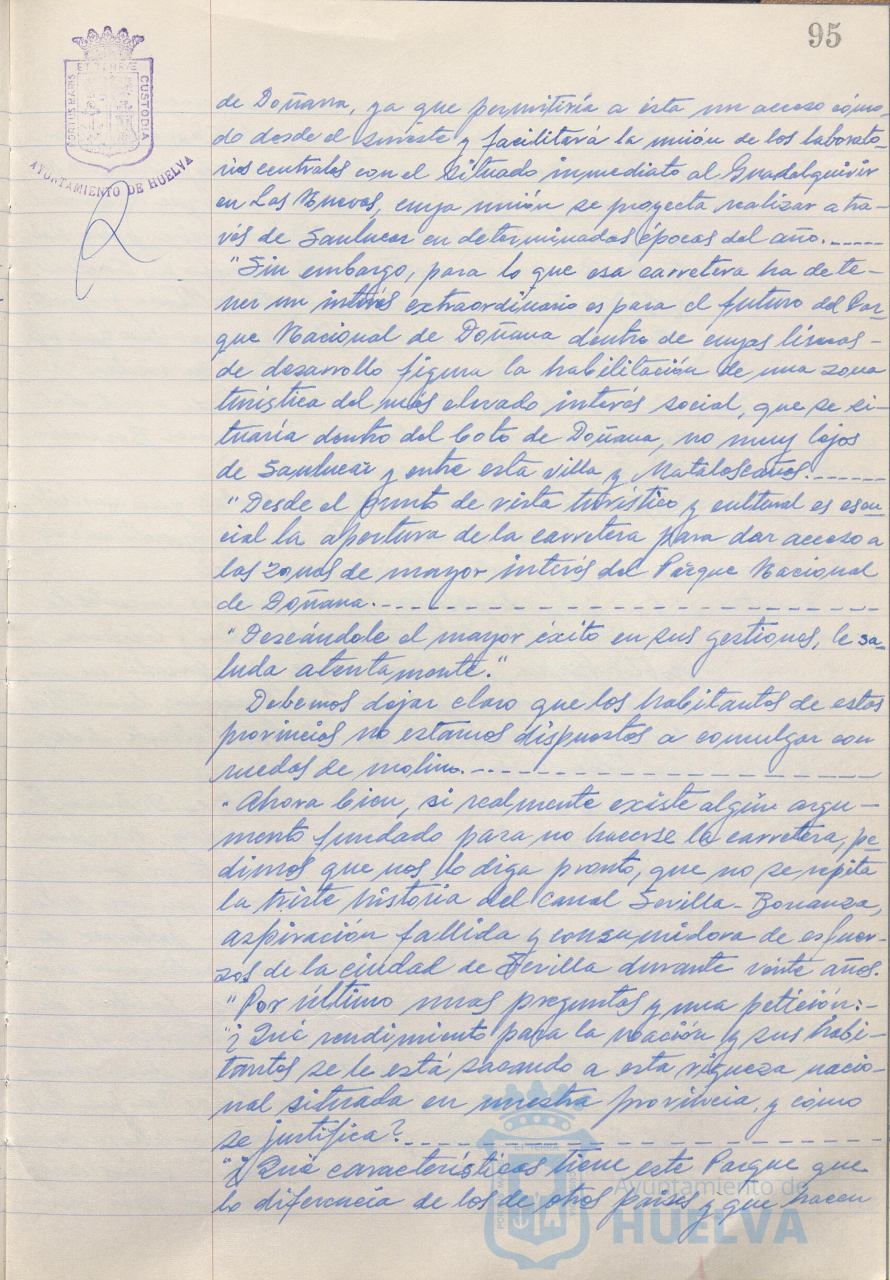 95
PORTUS MARIS
ET TERRE
CUSTODIA
AYUNTAMIENTO DE HUELVA
de Doñana, ya que permitiría a ésta un acceso cómo-
do desde el sureste y facilitará la unión de los laborato-
rios centrales con el situado inmediato al Guadalquivir
en Las Nuevas, cuya unión se proyecta realizar a tra-
vés de Sanlucar en determinadas épocas del año.-----
"Sin embargo, para lo que esa carretera ha de te-
ner un interés extraordinario es para el futuro del Par-
que Nacional de Doñana dentro de cuyas líneas -
de desarrollo figura la habilitación de una zona
turística del más elevado interés social, que se si-
tuaría dentro del Coto de Doñana, no muy lejos
de Sanlucar y entre esta villa y Matalascañas.-----
"Desde el punto de vista turístico y cultural es esen-
cial la apertura de la carretera para dar acceso a
las zonas de mayor interés del Parque Nacional
de Doñana.--------------------
"Deseándole el mayor éxito en sus gestiones, le sa-
luda atentamente."
Debemos dejar claro que los habitantes de estas
provincias no estamos dispuestos a comulgar con
ruedas de molino.----------------
"Ahora bien, si realmente existe algún argu-
mento fundado para no hacerse la carretera, pe-
dimos que nos lo diga pronto, que no se repita
la triste historia del Canal Sevilla-Bonanza,
aspiración fallida y consumidora de esfuer-
zos de la ciudad de Sevilla durante veinte años.
"Por último unas preguntas y una petición:-
"¿Qué rendimiento para la nación y sus habi-
tantes se le está sacando a esta riqueza nacio-
nal situada en nuestra provincia, y cómo
se justifica?--------------------
"¿Qué características tiene este Parque que
lo diferencia de los de otros países y que hacen
Ayuntamiento de
HUELVA